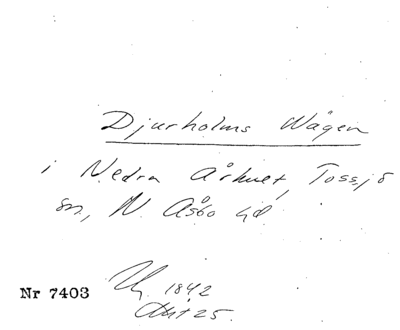 Djurholms Wägen
i Nedra Århult, Tossjö
sn, N. Åsbo hd
Nr 7403
1842
Akt 25.